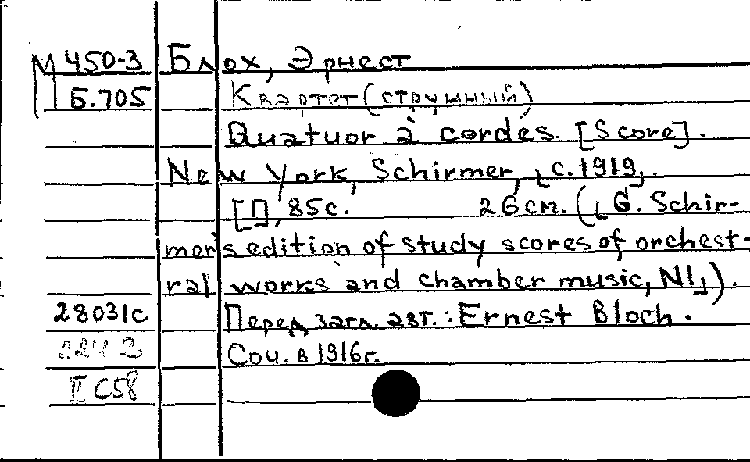 М 450-3 Блох, Эрнест
Б.705 Квартет (струнный)
Quatuor à cordes. [Score].
New York, Schirmer, c. 1919.
[1], 85с. 26см. (G. Schir-
mer's edition of study scores of orchest-
ral works and chamber music, N1).
28031с Перед загл. авт.: Ernest Bloch.
Соч. в 1916г.
II C58